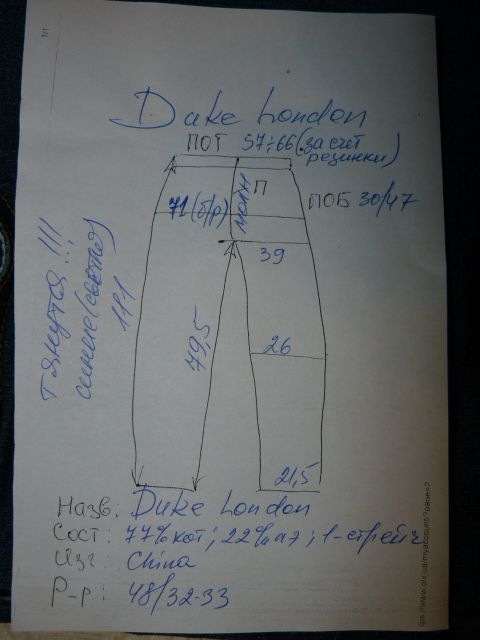 Duke London
ПОТ 57÷66 (за счет
резинки)
71 (б/р)
МОЛН
П
ПОБ 30/47
39
79,5
26
21,5
тянутся!!!
синие (светлые)
Назв: Duke London
Сост: 77% кот; 22% пэ; 1-стрейч
Изг: China
Р-р: 48/32-33
1/1